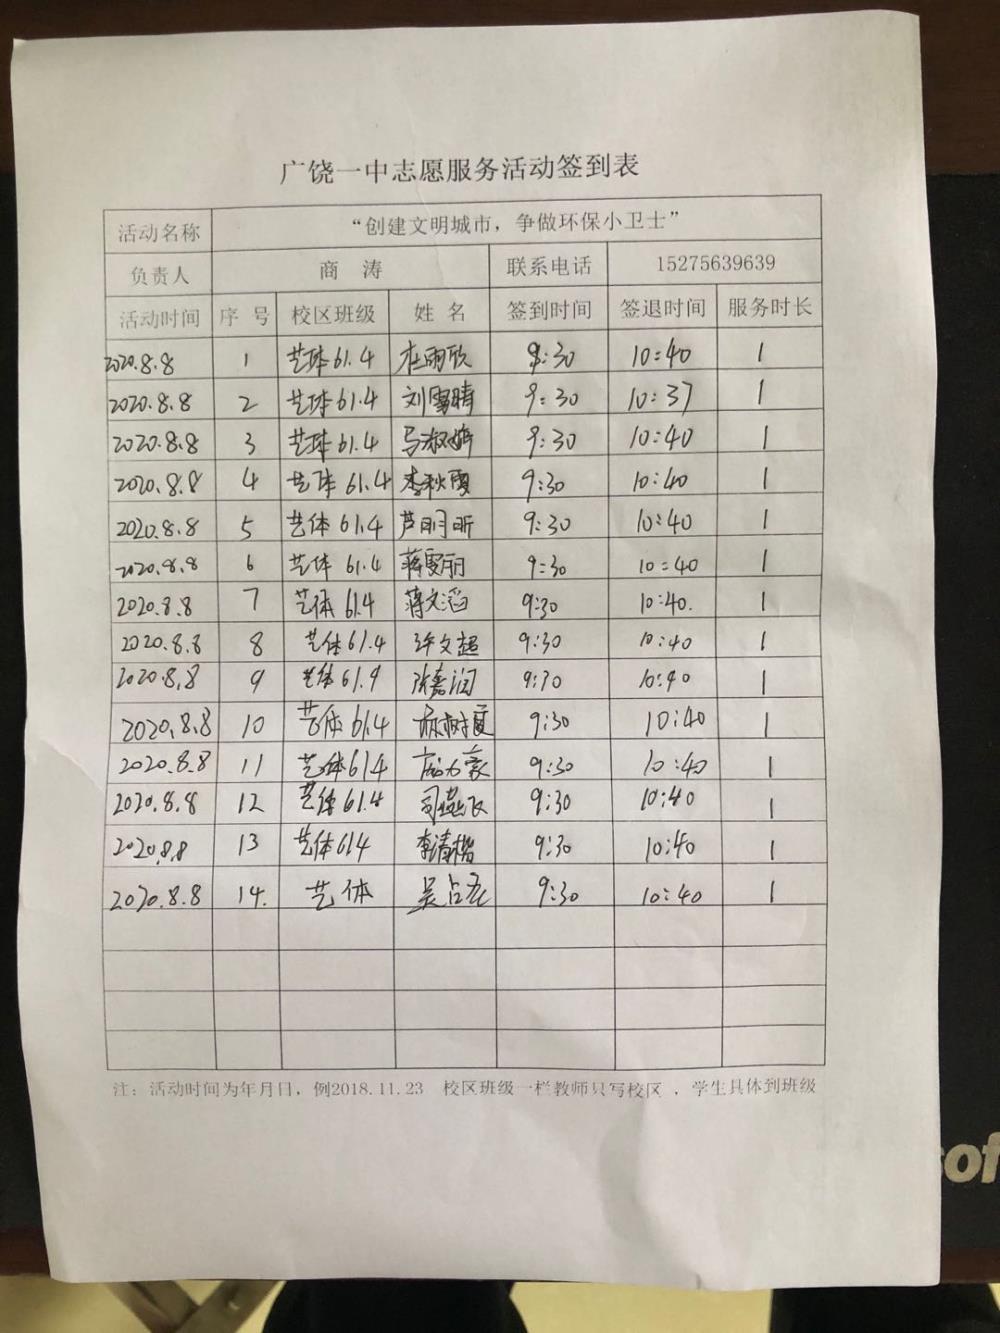 广饶一中志愿服务活动签到表
活动名称 “创建文明城市，争做环保小卫士”
负责人 商 涛 联系电话 15275639639
活动时间 序 号 校区班级 姓 名 签到时间 签退时间 服务时长
2020.8.8 1 艺体61.4 杜雨欣 9:30 10:40 1
2020.8.8 2 艺体61.4 刘雪晴 9:30 10:37 1
2020.8.8 3 艺体61.4 马淑娇 9:30 10:40 1
2020.8.8 4 艺体61.4 李秋霞 9:30 10:40 1
2020.8.8 5 艺体61.4 芦明昕 9:30 10:40 1
2020.8.8 6 艺体61.4 蒋雯丽 9:30 10:40 1
2020.8.8 7 艺体61.4 蒋文滔 9:30 10:40. 1
2020.8.8 8 艺体61.4 许文超 9:30 10:40 1
2020.8.8 9 艺体61.4 张嘉润 9:30 10:40 1
2020.8.8 10 艺体61.4 9:30 10:40 1
2020.8.8 11 艺体614 9:30 10:40 1
2020.8.8 12 艺体61.4 司燕飞 9:30 10:40 1
2020.8.8 13 艺体614 李清楷 9:30 10:40 1
2020.8.8 14. 艺体 9:30 10:40 1
注：活动时间为年月日，例2018.11.23 校区班级一栏教师只写校区，学生具体到班级
sof